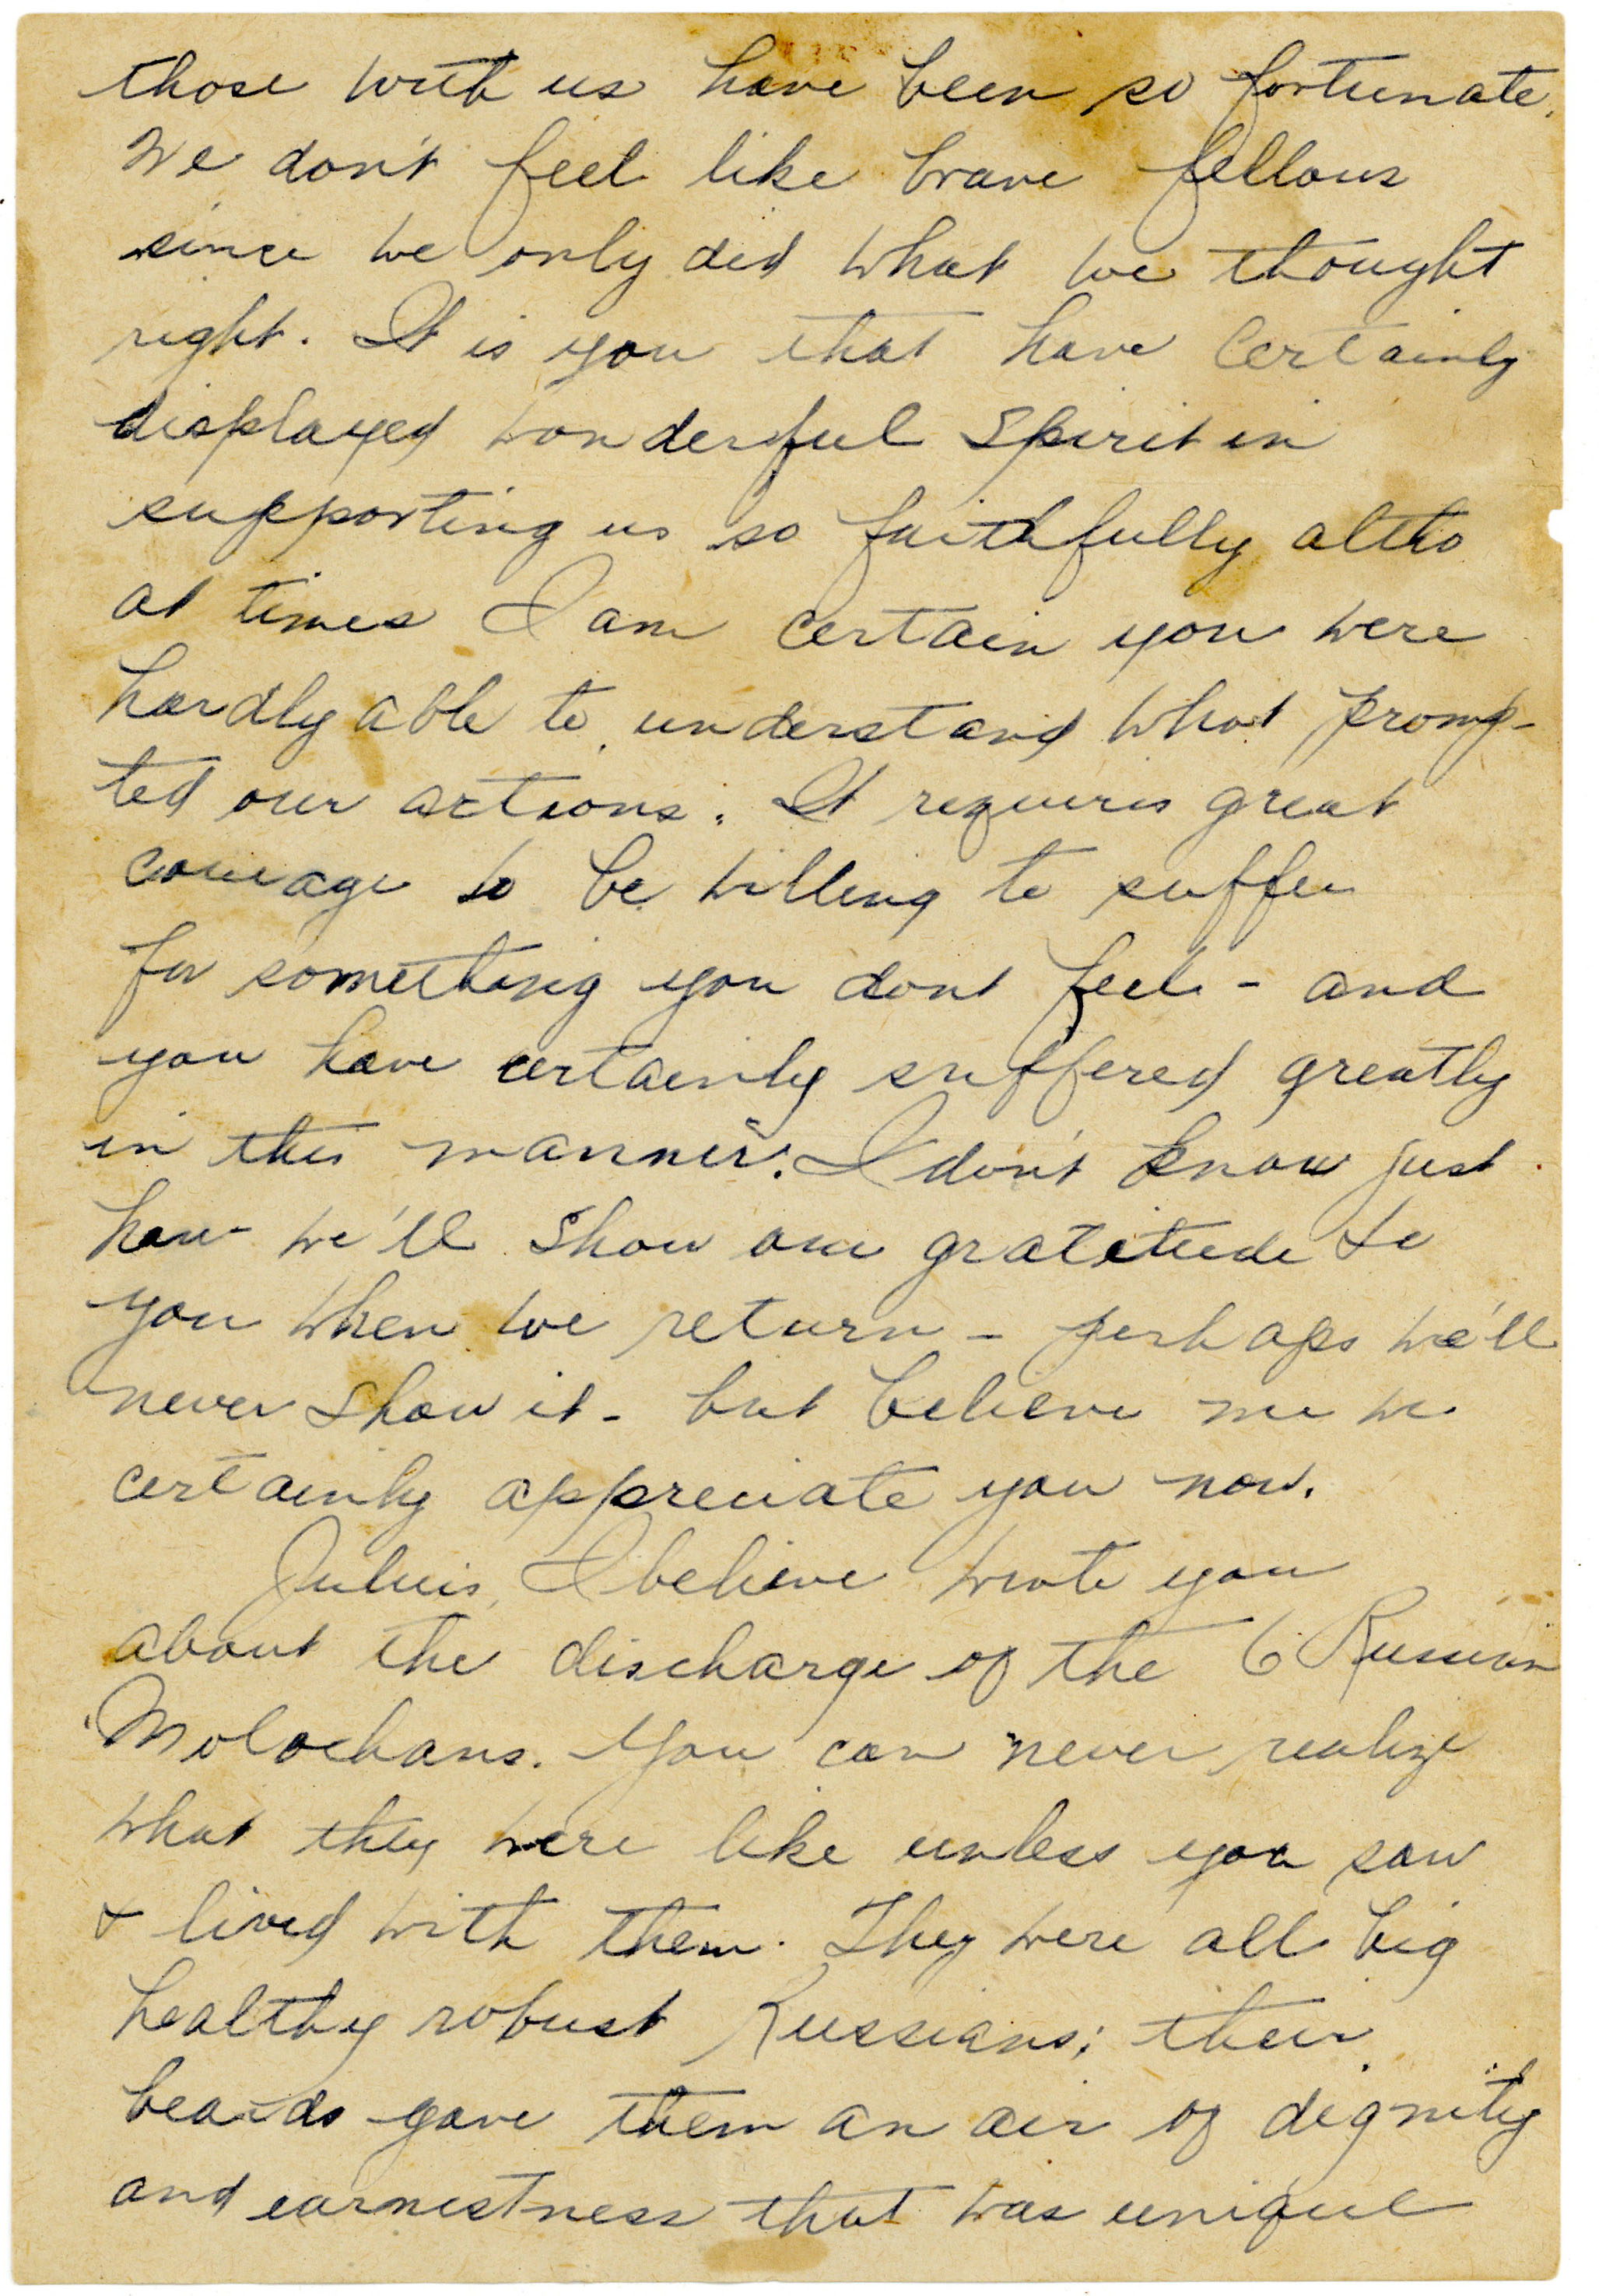 those with us have been so fortunate.
We don't feel like brave fellows
since we only did what we thought
right. It is you that have certainly
displayed wonderful spirit in
supporting us so faithfully altho
at times I am certain you were
hardly able to understand what promp-
ted our actions. It requires great
courage to be willing to suffer
for something you dont feel - and
you have certainly suffered greatly
in this manner. I don't know just
how we'll show our gratitude to
you when we return - perhaps we'll
never show it - but believe me we
certainly appreciate you now.
Julius, I believe wrote you
about the discharge of the 6 Russian
Molochans. You can never realize
what they were like unless you saw
& lived with them. They were all big
healthy robust Russians; their
beards gave them an air of dignity
and earnestness that was unique